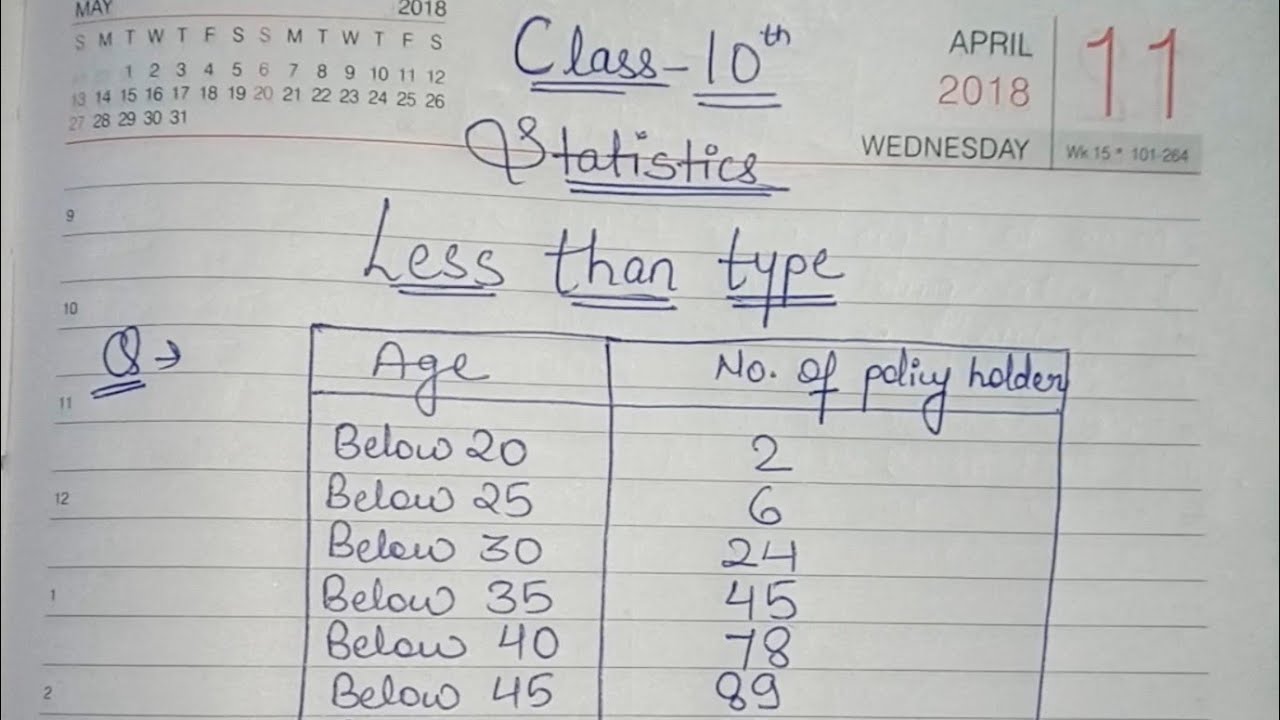 MAY 2018
S M T W T F S S M T W T F S
1 2 3 4 5 6 7 8 9 10 11 12
13 14 15 16 17 18 19 20 21 22 23 24 25 26
27 28 29 30 31
APRIL
2018
WEDNESDAY
11
Wk 15 * 101-264
Class-10th
Statistics
Less than type
9
10
11
12
1
2
Q →
Age No. of policy holder
Below 20 2
Below 25 6
Below 30 24
Below 35 45
Below 40 78
Below 45 89